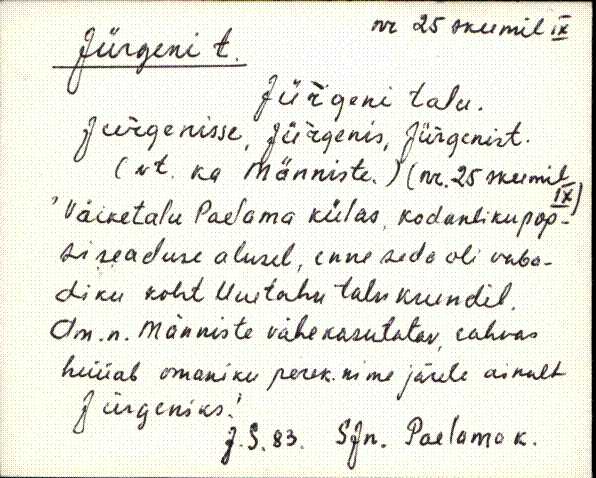 nr 25 skeemil IX
Jürgeni t.
Jürgeni talu.
Jürgenisse, Jürgenis, Jürgenist.
(vt. ka Männiste.) (nr. 25 skeemil IX)
'Väiketalu Paelama külas, kodanliku pop-
si seaduse alusel, enne seda oli vaba-
diku koht Uuetalu talu krundil.
Am. n. Männiste vähekasutatav, rahvas
hüüab omaniku perek. nime järele ainult
Jürgeniks.'
J. S. 83. SJn. Paelama k.